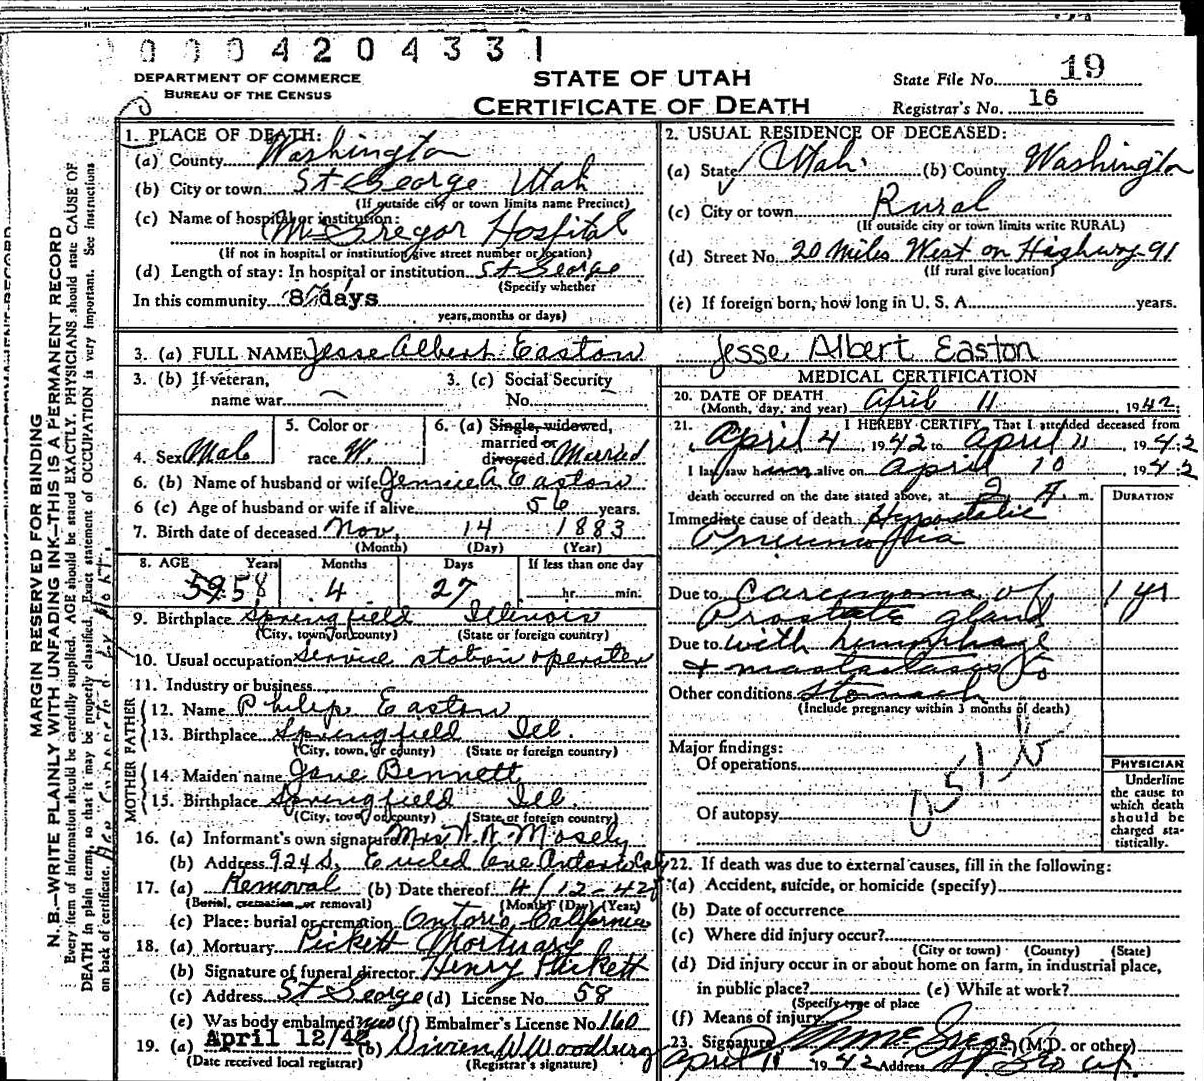 0004204331
DEPARTMENT OF COMMERCE
BUREAU OF THE CENSUS
STATE OF UTAH
CERTIFICATE OF DEATH
State File No. 19
Registrar's No. 16
1. PLACE OF DEATH:
(a) County Washington
(b) City or town St George Utah
(If outside city or town limits name Precinct)
(c) Name of hospital or institution:
McGregor Hospital
(If not in hospital or institution give street number or location)
(d) Length of stay: In hospital or institution St George
(Specify whether
In this community 8 days
years, months or days)
2. USUAL RESIDENCE OF DECEASED:
(a) State Utah (b) County Washington
(c) City or town Rural
(If outside city or town limits write RURAL)
(d) Street No. 20 Miles West on Highway 91
(If rural give location)
(e) If foreign born, how long in U. S. A. years.
3. (a) FULL NAME Jesse Albert Easton
Jesse Albert Easton
3. (b) If veteran, name war
3. (c) Social Security No.
4. Sex Male
5. Color or race W.
6. (a) Single, widowed, married or divorced Married
6. (b) Name of husband or wife Jennie A Easton
6 (c) Age of husband or wife if alive 56 years.
7. Birth date of deceased Nov. 14 1883
(Month) (Day) (Year)
8. AGE Years Months Days If less than one day
59 58 4 27 hr. min.
9. Birthplace Springfield Illinois
(City, town, or county) (State or foreign country)
10. Usual occupation Service station operater
11. Industry or business
FATHER
12. Name Philip Easton
13. Birthplace Springfield Ill.
(City, town, or county) (State or foreign country)
MOTHER
14. Maiden name Jane Bennett
15. Birthplace Springfield Ill.
(City, town or county) (State or foreign country)
16. (a) Informant's own signature Mrs. Mosely
(b) Address 924 S. Euclid Ave
17. (a) Removal (b) Date thereof 4/12-42
(Burial, cremation, or removal) (Month) (Day) (Year)
(c) Place: burial or cremation Ontario, California
18. (a) Mortuary Pickett Mortuary
(b) Signature of funeral director Henry Pickett
(c) Address St George (d) License No. 58
(e) Was body embalmed yes (f) Embalmer's License No. 160
19. (a) April 12/42 (b) Woodbury
(Date received local registrar) (Registrar's signature)
MEDICAL CERTIFICATION
20. DATE OF DEATH
(Month, day, and year) April 11, 1942
21. I HEREBY CERTIFY, That I attended deceased from
April 4, 1942 to April 11, 1942
I last saw him alive on April 10 1942
death occurred on the date stated above, at 2 A m.
DURATION
Immediate cause of death Hypostatic
Pneumonia
Due to Carcinoma of 1 yr
Prostate gland
Due to with hemorrhage
+ mastastasis to
Other conditions Stomach
(Include pregnancy within 3 months of death)
Major findings:
Of operations
051b
Of autopsy
PHYSICIAN
Underline
the cause to
which death
should be
charged sta-
tistically.
22. If death was due to external causes, fill in the following:
(a) Accident, suicide, or homicide (specify)
(b) Date of occurrence
(c) Where did injury occur?
(City or town) (County) (State)
(d) Did injury occur in or about home on farm, in industrial place,
in public place? (e) While at work?
(Specify type of place
(f) Means of injury
23. Signature McGregor (M.D. or other)
April 11 1942 Address St Geo Ut.
MARGIN RESERVED FOR BINDING
N. B.—WRITE PLAINLY WITH UNFADING INK—THIS IS A PERMANENT RECORD
Every item of information should be carefully supplied. AGE should be stated EXACTLY. PHYSICIANS should state CAUSE OF
DEATH in plain terms, so that it may be properly classified. Exact statement of OCCUPATION is very important. See instructions
on back of certificate.